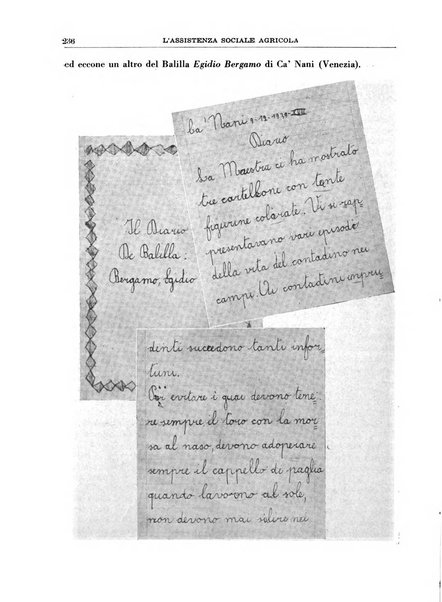 236
L'ASSISTENZA SOCIALE AGRICOLA
ed eccone un altro del Balilla Egidio Bergamo di Ca' Nani (Venezia).
Il Diario
De Balilla:
Bergamo, Egidio
Ca' Nani 9-12-1939-XVIII
Diario
La Maestra ci ha mostrato
tre cartelloni con tante
figurine colorate. Vi si rap
presentavano vari episodi
della vita del contadino nei
campi. Ai contadini impru
denti succedono tanti infor-
tuni.
Per evitare i guai devono tene
re sempre il toro con la mor
sa al naso, devono adoperare
sempre il cappello di paglia
quando lavoono al sole,
non devono mai salire nei